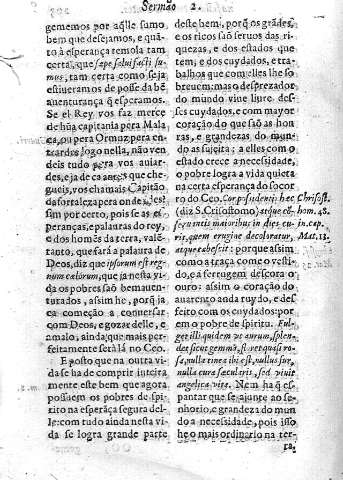 Sermão 2.
gozemos por aq̃lle sumo
bem que desejamos, e quã-
to à esperança temola tam
certa, que spe salui facti su-
mus, tam certa como se ja
estiueramos de posse da bẽ
auenturança q̃ esperamos.
Se el Rey vos faz merce
de hũa capitania pera Mala
ca, ou pera Ormuz, pera en
trardes logo nella, não ven
deis tudo pera vos auiar-
des, e ja de antes que che-
gueis, vos chamais Capitão
da fortaleza pera onde is?
sim por certo, pois se as es
peranças, e palauras do rey,
e dos homẽs da terra, valẽ
tanto, que fará a palaura de
Deos, diz que ipsorum est reg
num cælorum, que ja nesta vi
da os pobres são bemauen-
turados, assim he, porq̃ ja
ca começão a conuersar
com Deos, e gozar delle, e
amalo, ainda que mais per-
feitamente será là no Ceo.
E posto que na outra vi
da se ha de comprir inteira
mente este bem que agora
possuem os pobres de spi-
rito na esperãça segura del-
le: com tudo ainda nesta vi
da se logra grande parte
deste bem, porq̃ os grãdes,
e os ricos saõ seruos das ri-
quezas, e dos estados que
tem, e dos cuydados, e tra-
balhos que com elles lhe so
breuem: mas o desprezador
do mundo viue liure des-
ses cuydados, e com mayor
coração do que saõ as hon-
ras, e grandezas do mun-
do as sujeita; a elles com o
estado crece a necessidade,
o pobre logra a vida quieta
na certa esperança do socor
ro do Ceo.
(diz S. Crisostomo) atque
seruntis maioribus in dies cu-
ris, quem erugine decoloratur,
atque tabescit: porque assim
como a traça come o vesti-
do, e a ferrugem descora o
ouro: assim o coração do
auarento anda ruydo, e des
feito com os cuydados: po-
rem o pobre de spirito. Ful-
get illi quidem ut aurum, splen
det sicut gemma, floret quasi ro-
sa, nulla tinea ibi est, nullus fur,
nulla cura sæcularis, sed viuit
angelica vita. Nem ha q̃ es-
pantar que se ajunte ao se-
nhorio, e grandeza do mun
do a necessidade, pois isso
he o mais ordinario na ter-
ra,
Chrisost.
hom. 48.
in cap.
Mat. 13.